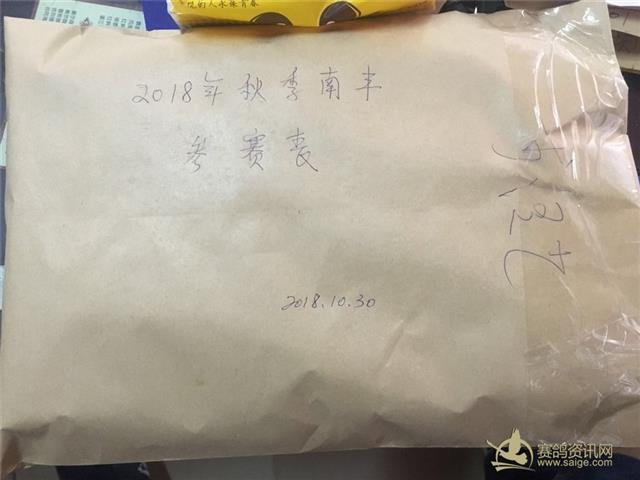 的人永葆青春
2018年秋季南丰
参赛表
2018.10.30
赛鸽资讯网
www.saige.com